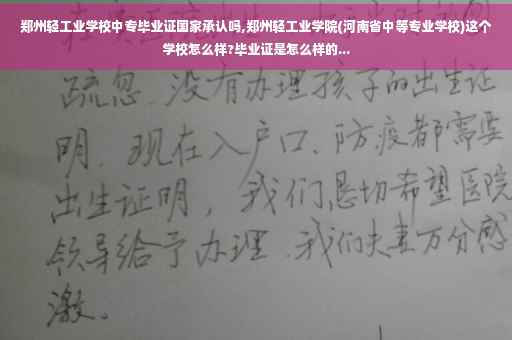 郑州轻工业学校中专毕业证国家承认吗,郑州轻工业学院(河南省中等专业学校)这个
学校怎么样?毕业证是怎么样的...
疏忽、没有办理孩子的出生证
明、现在入户口、防疫都需要
出生证明，我们恳切希望医院
领导给予办理、我们夫妻万分感
激。